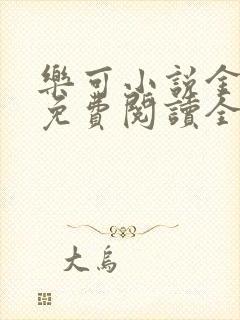 樂可小說全
免費閱讀全
大烏